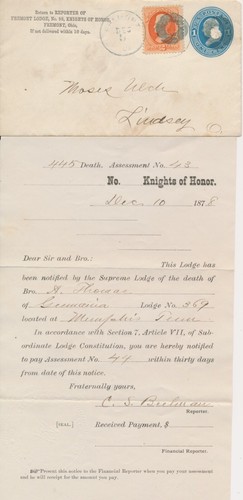 Return to REPORTER of
FREMONT LODGE, No. 99, KNIGHTS OF HONOR,
FREMONT, OHIO,
If not delivered within 10 days.
Moses Ulch
Lindsey
445 Death. Assessment No. 43
No. Knights of Honor.
Dec 10 1878
Dear Sir and Bro: This Lodge has
been notified by the Supreme Lodge of the death of
Bro. A.
of Germania Lodge No. 369
located at Memphis Tenn
In accordance with Section 7, Article VII, of Sub-
ordinate Lodge Constitution, you are hereby notified
to pay Assessment No. 44 within thirty days
from date of this notice.
Fraternally yours,
C. S.
Reporter.
[SEAL.] Received Payment, $
Financial Reporter.
Present this notice to the Financial Reporter when you pay your assessment
and he will receipt for the amount you pay.